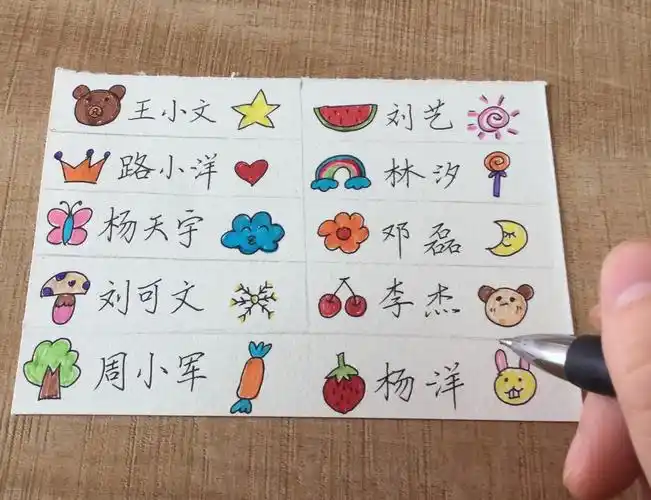 王小文 刘艺
路小洋 林汐
杨天宇 邓磊
刘可文 李杰
周小军 杨洋